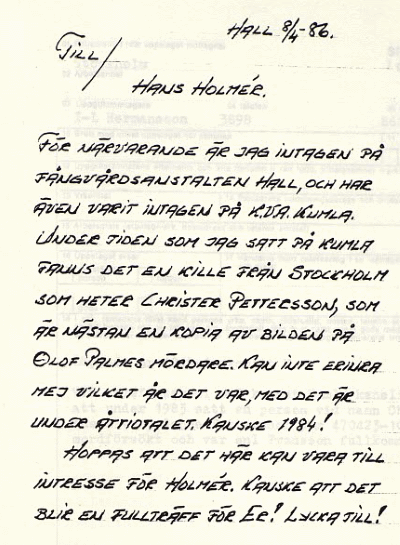 HALL 8/4-86.
TILL/
HANS HOLMÉR.
FÖR NÄRVARANDE ÄR JAG INTAGEN PÅ
FÅNGVÅRDSANSTALTEN HALL, OCH HAR
ÄVEN VARIT INTAGEN PÅ KVA. KUMLA.
UNDER TIDEN SOM JAG SATT PÅ KUMLA
FANNS DET EN KILLE FRÅN STOCKHOLM
SOM HETER CHRISTER PETTERSSON, SOM
ÄR NÄSTAN EN KOPIA AV BILDEN PÅ
OLOF PALMES MÖRDARE. KAN INTE ERINRA
MEJ VILKET ÅR DET VAR, MED DET ÄR
UNDER ÅTTIOTALET. KANSKE 1984!
HOPPAS ATT DET HÄR KAN VARA TILL
INTRESSE FÖR HOLMÉR. KANSKE ATT DET
BLIR EN FULLTRÄFF FÖR ER! LYCKA TILL!